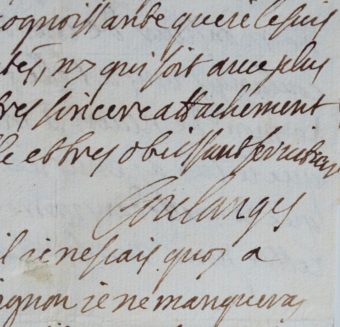 ognoissante que ie le suis
ny qui soit avec plus
tres sincere attachement
le et tres obeissant serviteur
Coulanges
il ie ne sçais quoy a
ignon ie ne manqueray